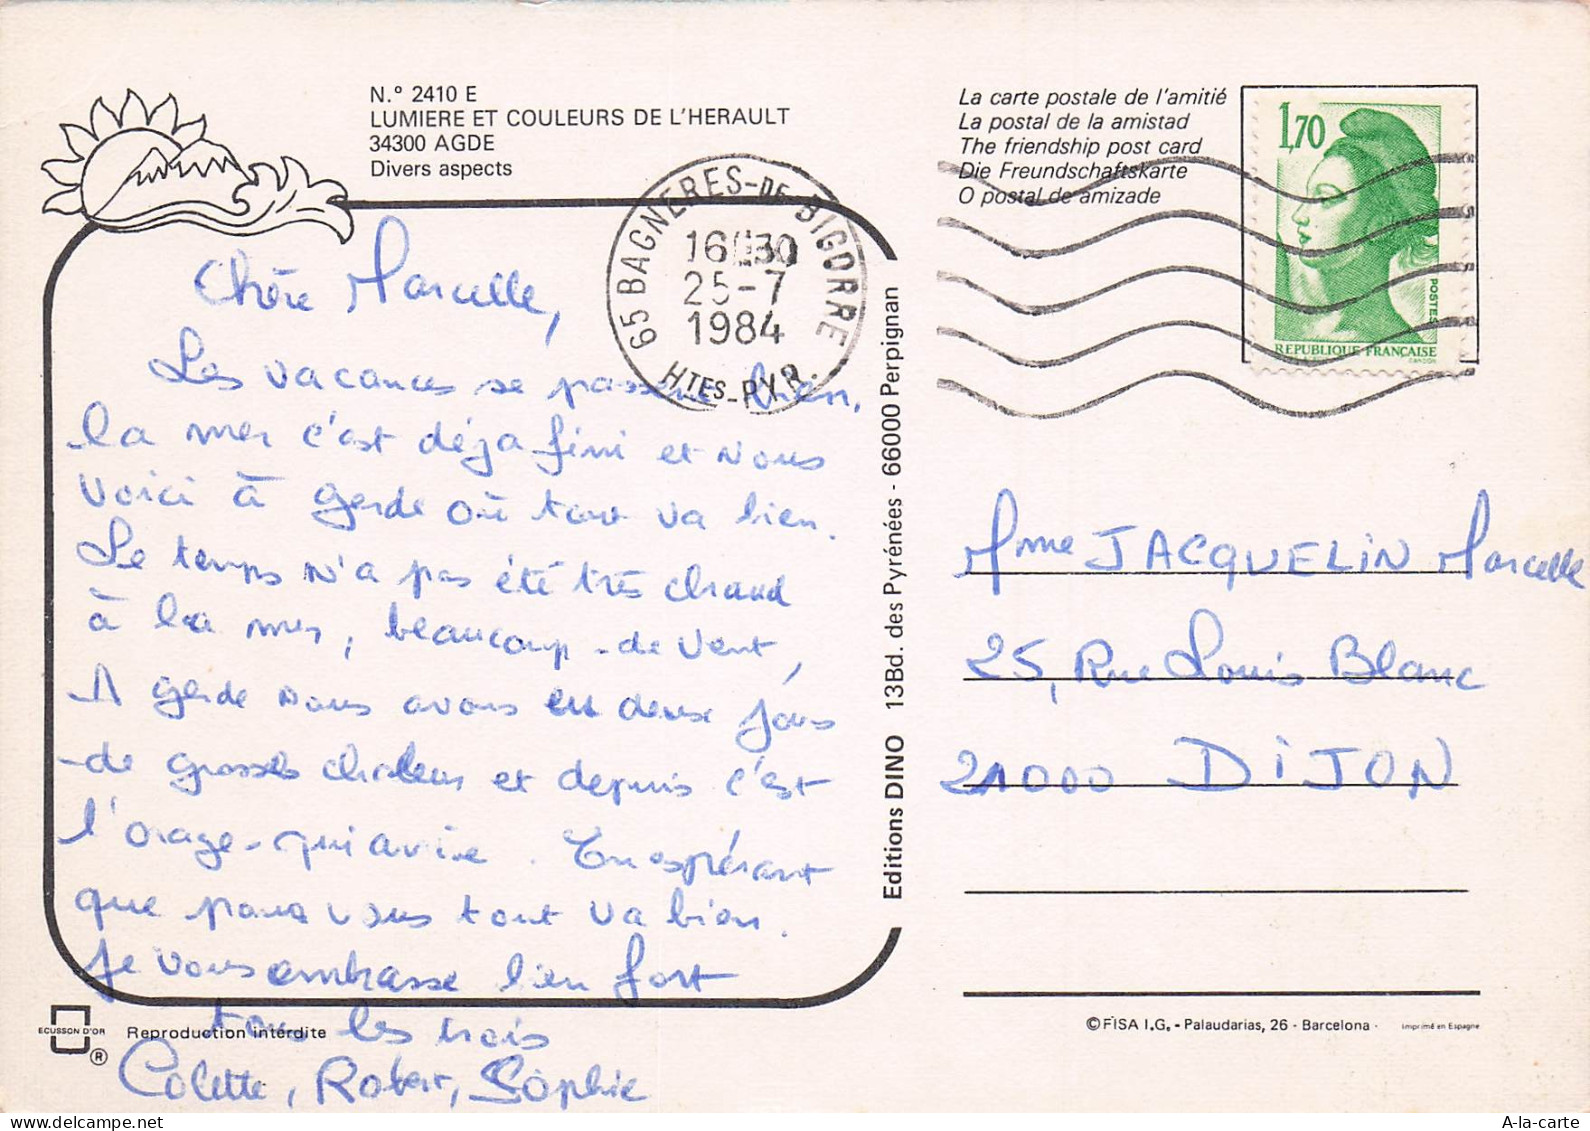 N.º 2410 E
LUMIERE ET COULEURS DE L'HERAULT
34300 AGDE
Divers aspects
La carte postale de l'amitié
La postal de la amistad
The friendship post card
Die Freundschaftskarte
O postal de amizade
1,70
POSTES
REPUBLIQUE FRANÇAISE
GANDON
65 BAGNERES-DE-BIGORRE
16H30
25-7
1984
HTES-PYR.
Chère Marcelle,
Les vacances se passent bien,
la mer c'est déja fini et nous
voici à gerde où tout va bien.
Le temps n'a pas été très chaud
à la mer, beaucoup de vent,
A gerde nous avons eu deux jours
de grosses chaleurs et depuis c'est
l'orage qui arrive. En espérant
que pour vous tout va bien.
Je vous embrasse bien fort
tous les trois
Colette, Robert, Sophie
Editions DINO 13Bd. des Pyrénées - 66000 Perpignan
Mme JACQUELIN Marcelle
25, Rue Louis Blanc
21000 DIJON
ECUSSON D'OR
®
Reproduction intérdite
©FISA I.G. - Palaudarias, 26 - Barcelona -
Imprimé en Espagne
A-la-carte